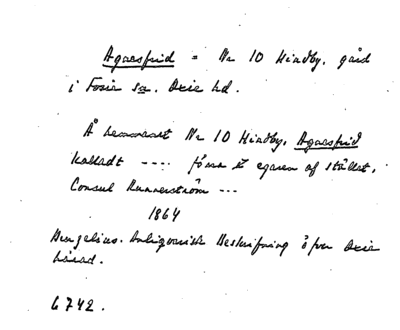 Agnesfrid = No 10 Hindby, gård
i Fosie sn. Oxie hd.
Å hemmanet No 10 Hindby, Agnesfrid
kalladt ---- förra egaren af stället,
Consul Runnerström ---
1864
Bengelius. Antiquarisk Beskrifning öfver Oxie
härad.
6742.